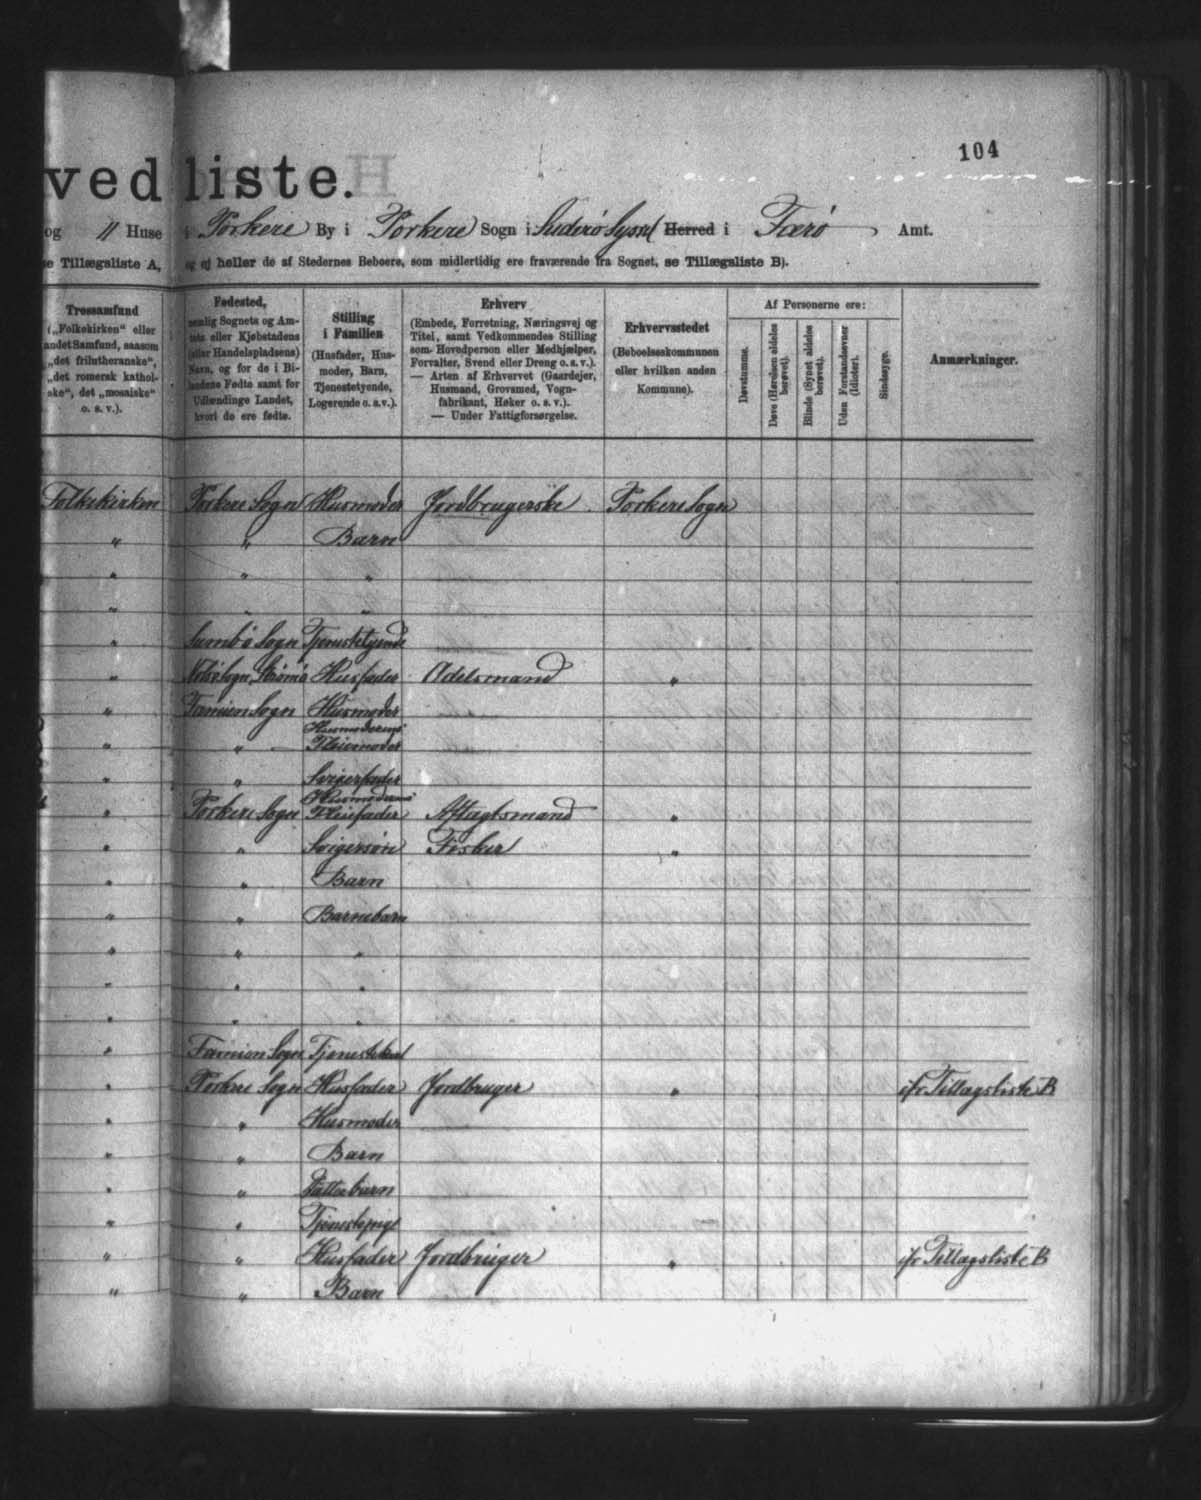 104
vedliste.
og 11 Huse i Porkere By i Porkere Sogn i Suderø Syssel Herred i Færø Amt.
se Tillægsliste A, og ej heller de af Stedernes Beboere, som midlertidig ere fraværende fra Sognet, se Tillægsliste B).
Trossamfund
(„Folkekirken" eller
andet Samfund, saasom
„det frilutheranske",
„det romersk kathol-
ske", det „mosaiske"
o. s. v.).
Fødested,
nemlig Sognets og Am-
tets eller Kjøbstadens
(eller Handelspladsens)
Navn, og for de i Bi-
landene Fødte samt for
Udlændinge Landet,
hvori de ere fødte.
Stilling
i Familien
(Husfader, Hus-
moder, Barn,
Tjenestetyende,
Logerende o. s. v.).
Erhverv
(Embede, Forretning, Næringsvej og
Titel, samt Vedkommendes Stilling
som Hovedperson eller Medhjælper,
Forvalter, Svend eller Dreng o. s. v.).
— Arten af Erhvervet (Gaardejer,
Husmand, Grovsmed, Vogn-
fabrikant, Høker o. s. v.).
— Under Fattigforsørgelse.
Erhvervsstedet
(Beboelseskommunen
eller hvilken anden
Kommune).
Af Personerne ere:
Døvstumme.
Døve (Hørelsen aldeles
berøvet).
Blinde (Synet aldeles
berøvet).
Uden Forstandsevner
(Idioter).
Sindssyge.
Anmærkninger.
Folkekirken Porkere Sogn Husmoder Jordbrugerske Porkere Sogn
" " Barn
" " "
" " "
" Sumbø Sogn Tjenestetyende
" Nolsø Sogn, Strømø Husfader Odelsmand "
" Famien Sogn Husmoder
" " Husmoderens
Pleiemoder
" " Svigerfader
" Porkere Sogn Husmoderens
Pleiefader Aftægtsmand "
" " Svigersøn Fisker "
" " Barn
" " Barnebarn
" " "
" " "
" " "
" Famien Sogn Tjenestekarl
" Porkere Sogn Husfader Jordbruger " cfr Tillægsliste B
" " Husmoder
" " Barn
" " Pleiebarn
" " Tjenestepige
" " Husfader Jordbruger " cfr Tillægsliste B
" " Barn